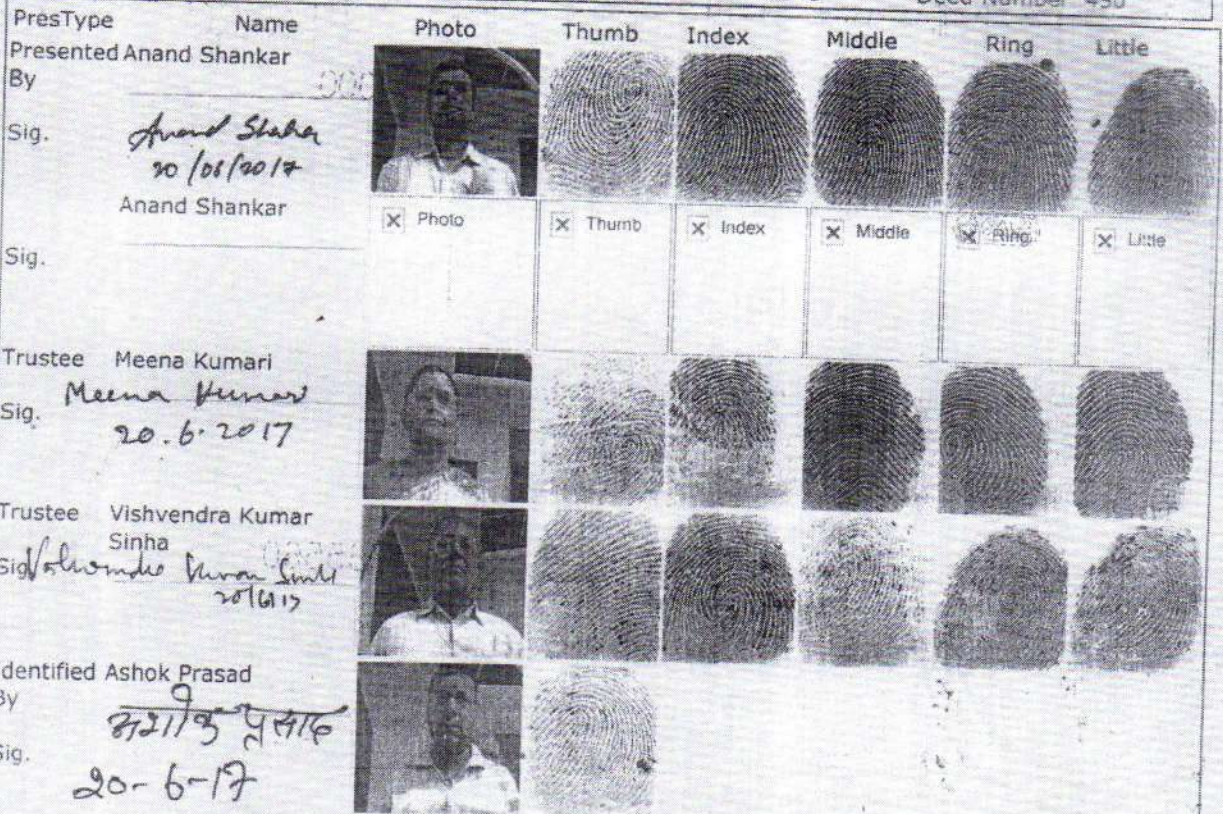 Deed Number 490
PresType Name Photo Thumb Index Middle Ring Little
Presented Anand Shankar
By
Sig. Anand Shankar
20/06/2017
Anand Shankar
Photo Thumb Index Middle Ring Little
Sig.
Trustee Meena Kumari
Sig. Meena Kumari
20.6.2017
Trustee Vishvendra Kumar
Sinha
Sig. Vishvendra Kumar Sinha
20/6/17
dentified Ashok Prasad
By
अशोक प्रसाद
Sig.
20-6-17